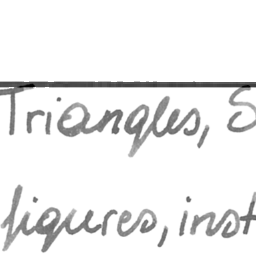 Triangles, S
figures, inst